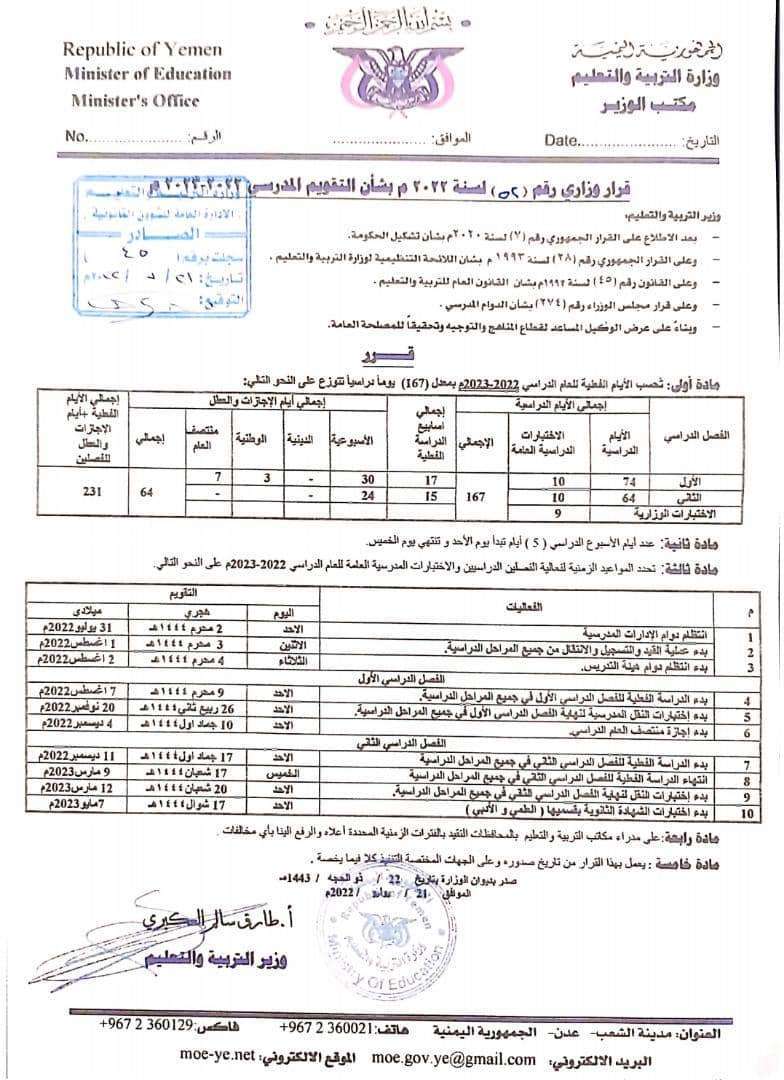 بسم الله الرحمن الرحيم
Republic of Yemen
Minister of Education
Minister's Office
الجمهورية اليمنية
وزارة التربية والتعليم
مكتب الوزير
No........................ الرقم:
الموافق: ........................
Date........................ التاريخ:
قرار وزاري رقم (٥٢) لسنة ٢٠٢٢ م بشأن التقويم المدرسي ٢٠٢٢-٢٠٢٣ م
الإدارة العامة للشؤون القانونية
الصادر
سجلت برقم ( ٤٥ )
تاريخ: ٢١/ ٧ / ٢٠٢٢م
التوقيع:
وزير التربية والتعليم:
- بعد الاطلاع على القرار الجمهوري رقم (٧) لسنة ٢٠٢٠م بشأن تشكيل الحكومة.
- وعلى القرار الجمهوري رقم (٢٨) لسنة ١٩٩٣م بشأن اللائحة التنظيمية لوزارة التربية والتعليم .
- وعلى القانون رقم (٤٥) لسنة ١٩٩٢م بشأن القانون العام للتربية والتعليم .
- وعلى قرار مجلس الوزراء رقم (٢٧٤) بشأن الدوام المدرسي .
- وبناءً على عرض الوكيل المساعد لقطاع المناهج والتوجيه وتحقيقاً للمصلحة العامة.
قـــرر
مادة أولى: تحسب الأيام الفعلية للعام الدراسي 2022-2023م بمعدل (167) يوماً دراسياً تتوزع على النحو التالي:
الفصل الدراسي إجمالي الأيام الدراسية إجمالي أسابيع الدراسة الفعلية إجمالي أيام الإجازات والعطل إجمالي الأيام الفعلية +أيام الإجازات والعطل للفصلين
الأيام الدراسية الاختبارات الدراسية العامة الإجمالي الأسبوعية الدينية الوطنية منتصف العام إجمالي
الأول 74 10 167 17 30 - 3 7 64 231
الثاني 64 10 15 24 - - -
الاختبارات الوزارية 9
مادة ثانية: عدد أيام الأسبوع الدراسي ( 5 ) أيام تبدأ يوم الأحد و تنتهي يوم الخميس.
مادة ثالثة: تحدد المواعيد الزمنية لفعالية الفصلين الدراسيين والاختبارات المدرسية العامة للعام الدراسي 2022-2023م على النحو التالي.
م الفعاليات التقويم
اليوم هجري ميلادي
1 انتظام دوام الإدارات المدرسية الاحد 2 محرم ١٤٤٤هـ 31 يوليو2022م
2 بدء عملية القيد والتسجيل والانتقال من جميع المراحل الدراسية. الاثنين 3 محرم ١٤٤٤هـ 1 اغسطس2022م
3 بدء انتظام دوام هيئة التدريس. الثلاثاء 4 محرم ١٤٤٤هـ 2 اغسطس2022م
الفصل الدراسي الأول
4 بدء الدراسة الفعلية للفصل الدراسي الأول في جميع المراحل الدراسية. الاحد 9 محرم ١٤٤٤هـ 7 اغسطس2022م
5 بدء إختبارات النقل المدرسية لنهاية الفصل الدراسي الأول في جميع المراحل الدراسية. الاحد 26 ربيع ثاني ١٤٤٤هـ 20 نوفمبر2022م
6 بدء إجازة منتصف العام الدراسي. الاحد 10 جماد اول ١٤٤٤هـ 4 ديسمبر2022م
الفصل الدراسي الثاني
7 بدء الدراسة الفعلية للفصل الدراسي الثاني في جميع المراحل الدراسية الاحد 17 جماد اول ١٤٤٤هـ 11 ديسمبر2022م
8 انتهاء الدراسة الفعلية للفصل الدراسي الثاني في جميع المراحل الدراسية الخميس 17 شعبان ١٤٤٤هـ 9 مارس2023م
9 بدء إختبارات النقل لنهاية الفصل الدراسي الثاني في جميع المراحل الدراسية. الاحد 20 شعبان ١٤٤٤هـ 12 مارس2023م
10 بدء اختبارات الشهادة الثانوية بقسميها ( العلمي و الأدبي ) الاحد 17 شوال ١٤٤٤هـ 7مايو2023م
مادة رابعة: على مدراء مكاتب التربية والتعليم بالمحافظات التقيد بالفترات الزمنية المحددة أعلاه والرفع الينا بأي مخالفات .
مادة خامسة : يعمل بهذا القرار من تاريخ صدوره وعلى الجهات المختصة التنفيذ كلا فيما يخصة .
صدر بديوان الوزارة بتاريخ 22 / ذو الحجه / 1443هـ
الموافق 21 / يوليو / 2022م
Republic of Yemen
Ministry Of Education
أ. طارق سالم العكبري
وزير التربية والتعليم
العنوان: مدينة الشعب- عدن- الجمهورية اليمنية هاتف: 360021 2 967+ فاكس: 360129 2 967+
البريد الالكتروني: moe.gov.ye@gmail.com الموقع الالكتروني: moe-ye.net